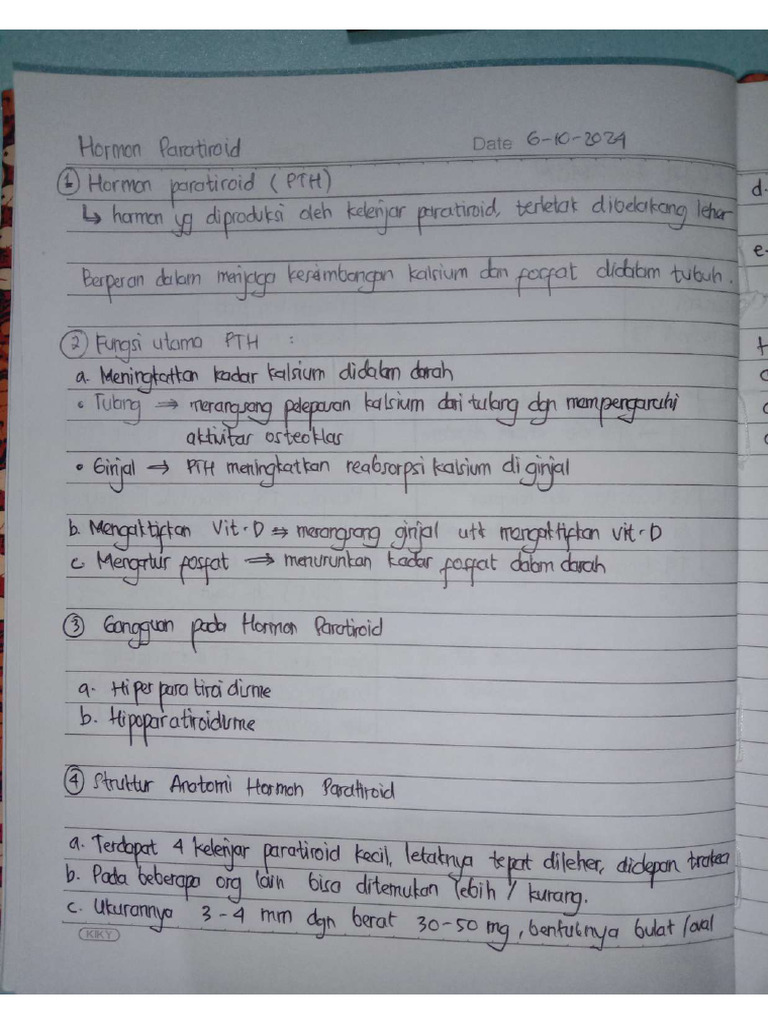 Hormon Paratiroid
Date 6-10-2024
① Hormon paratiroid (PTH)
↳ hormon yg diproduksi oleh kelenjar paratiroid, terletak dibelakang leher
Berperan dalam menjaga keseimbangan kalsium dan fosfat didalam tubuh.
② Fungsi utama PTH :
a. Meningkatkan kadar kalsium didalam darah
• Tulang → merangsang pelepasan kalsium dari tulang dgn mempengaruhi
aktivitas osteoklas
• Ginjal → PTH meningkatkan reabsorpsi kalsium di ginjal
b. Mengaktifkan Vit-D ⇒ merangsang ginjal utk mengaktifkan vit-D
c. Mengatur fosfat ⇒ menurunkan kadar fosfat dalam darah
③ Gangguan pada Hormon Paratiroid
a. Hiperparatiroidisme
b. Hipoparatiroidisme
④ Struktur Anatomi Hormon Paratiroid
a. Terdapat 4 kelenjar paratiroid kecil, letaknya tepat dileher, didepan trakea
b. Pada beberapa org lain bisa ditemukan lebih / kurang.
c. Ukurannya 3-4 mm dgn berat 30-50 mg, bentuknya bulat /oval
KIKY
d.
e.